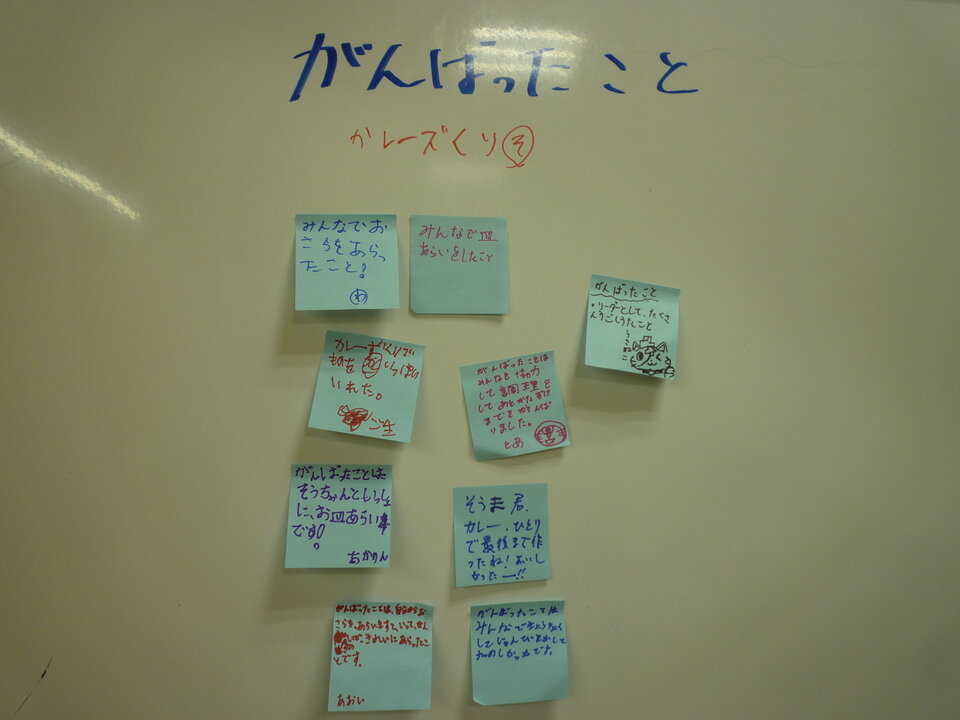 がんばったこと
カレーズくり そ
みんなでお
さらをあらっ
たこと!
わ
みんなで皿
あらいをしたこと
がんばったこと
・リーダーとして、たくさ
こと
うさねこ
カレーづくりで
ものを いっぱい
いれた。
がんばったことは
みんなと協力
して調理を
してあとかたづけ
までをがんば
りました。
とあ
がんばったことは
そうちゃんといっしょ
に、お皿あらい
です!
ちかりん
そうま君、
カレー、ひとり
で最後まで作
ったね!おいし
かったー!!
がんばったことは、自分からお
さらを、あらいますて、いって、ぜん
きれいにあらったこ
とです。
あおい
がんばったことは
みんなできょうりょく
して
たのしかったです。